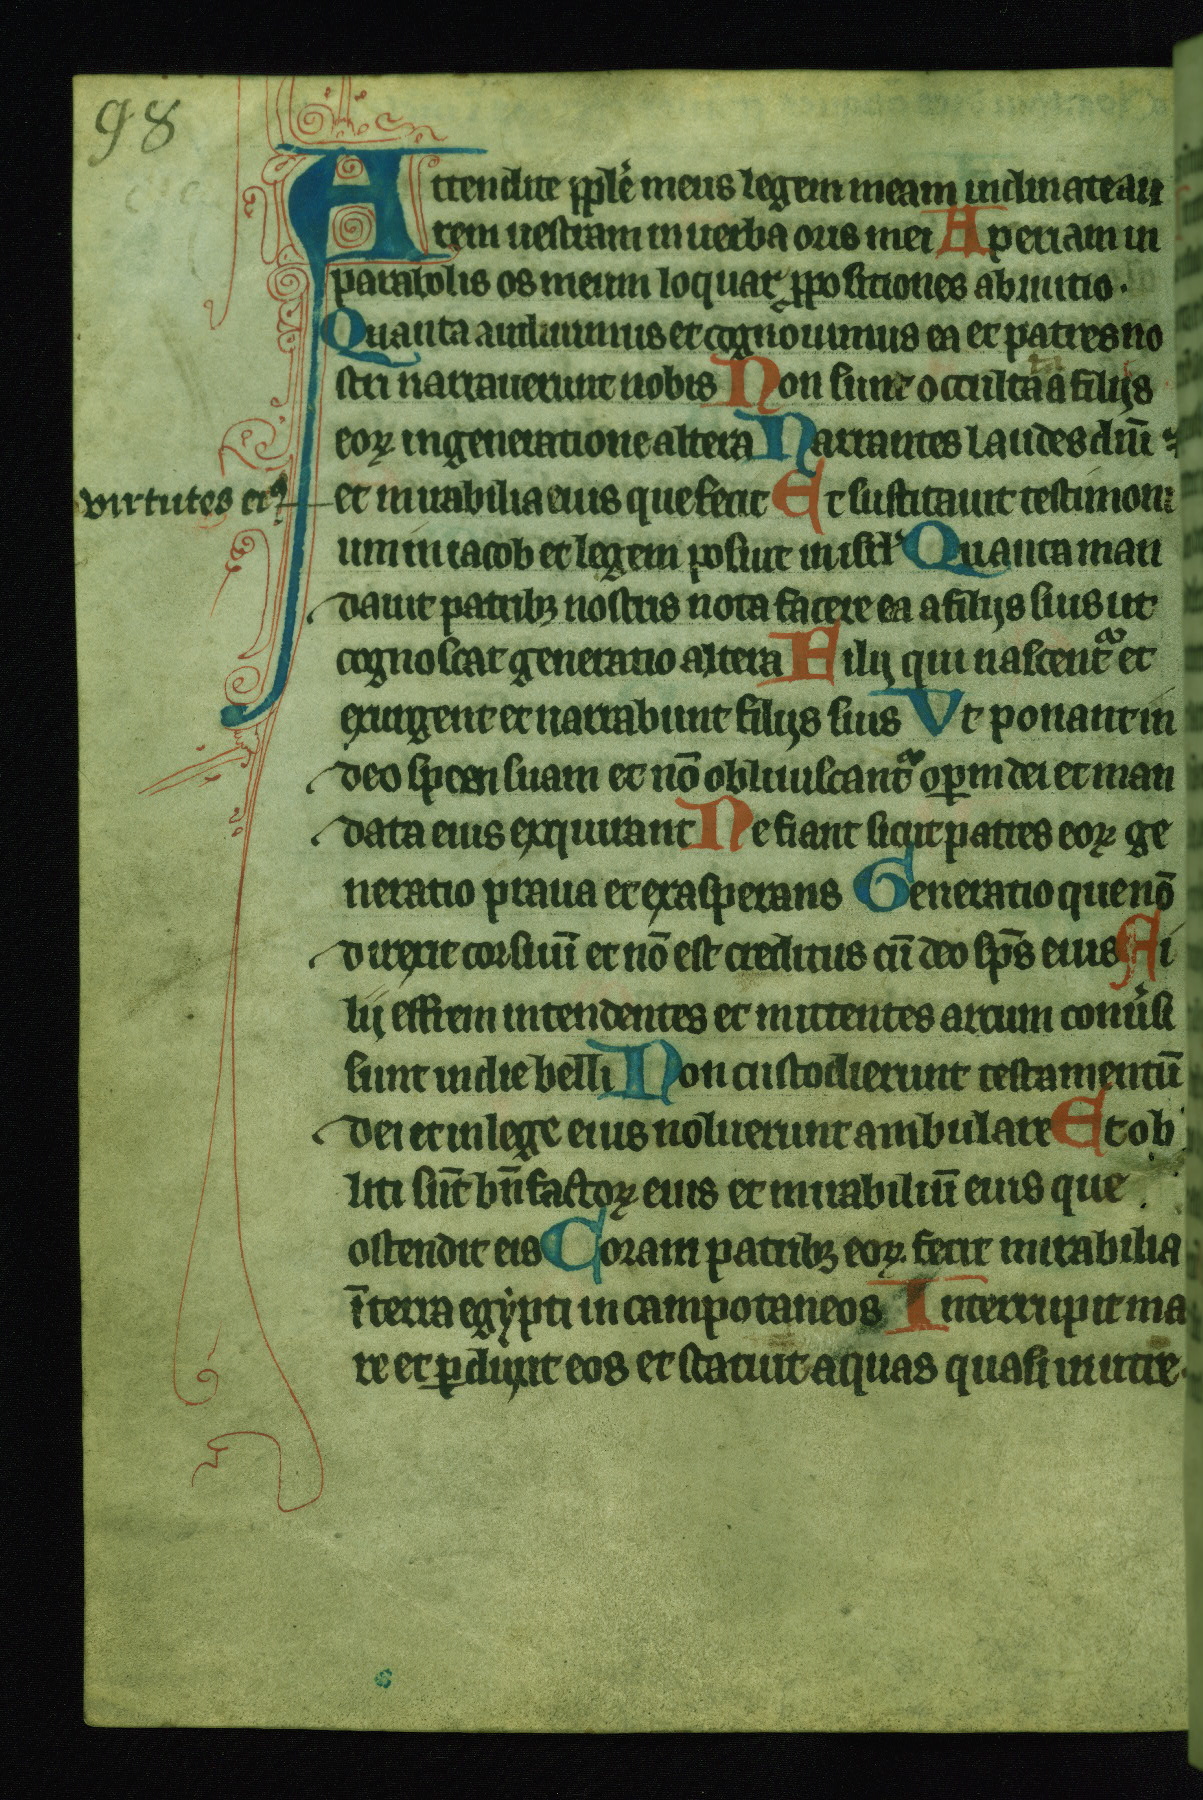 98
Attendite pple meus legem meam inclinate au
rem uestram in uerba oris mei Aperiam in
parabolis os meum loquar ppositiones ab initio.
Quanta audiuimus et cognouimus ea et patres no
stri narrauerunt nobis Non sunt occulta a filijs
eoꝝ in generatione altera Narrantes laudes dnī ⁊
virtutes eiꝰ
et mirabilia eius que fecit Et suscitauit testimoni
um in iacob et legem posuit in isrl' Quanta man
dauit patribꝫ nostris nota facere ea a filijs suis ut
cognoscat generatio altera Filij qui nascentᷓ et
exurgent et narrabunt filijs suis Vt ponant in
deo spem suam et nō obliuiscantᷓ opm dei et man
data eius exquirant Ne fiant sicut patres eoꝝ ge
neratio praua et exasperans Generatio que nō
direxit cor suū et nō est creditus cū deo sps̄ eius Fi
lij effrem intendentes et mittentes arcum conu'si
sunt in die belli Non custodierunt testamentū
dei et in lege eius noluerunt ambulare Et ob
liti sūt bn̄factoꝝ eius et mirabiliū eius que
ostendit eis Coram patribꝫ eoꝝ fecit mirabilia
ī terra egypti in campo taneos Interrupit ma
re et ꝑduxit eos et statuit aquas quasi in utre.